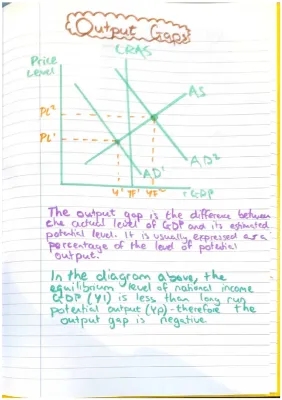 Output Gaps
LRAS
Price
Level
AS
PL²
PL'
AD'
AD²
Y' YF' YF²
rGDP
The output gap is the difference between
the actual level of GDP and its estimated
potential level. It is usually expressed as a
percentage of the level of potential
output.
In the diagram above, the
equilibrium level of national income
GDP (Y1) is less than long run
potential output (Yp) - therefore the
output gap is negative